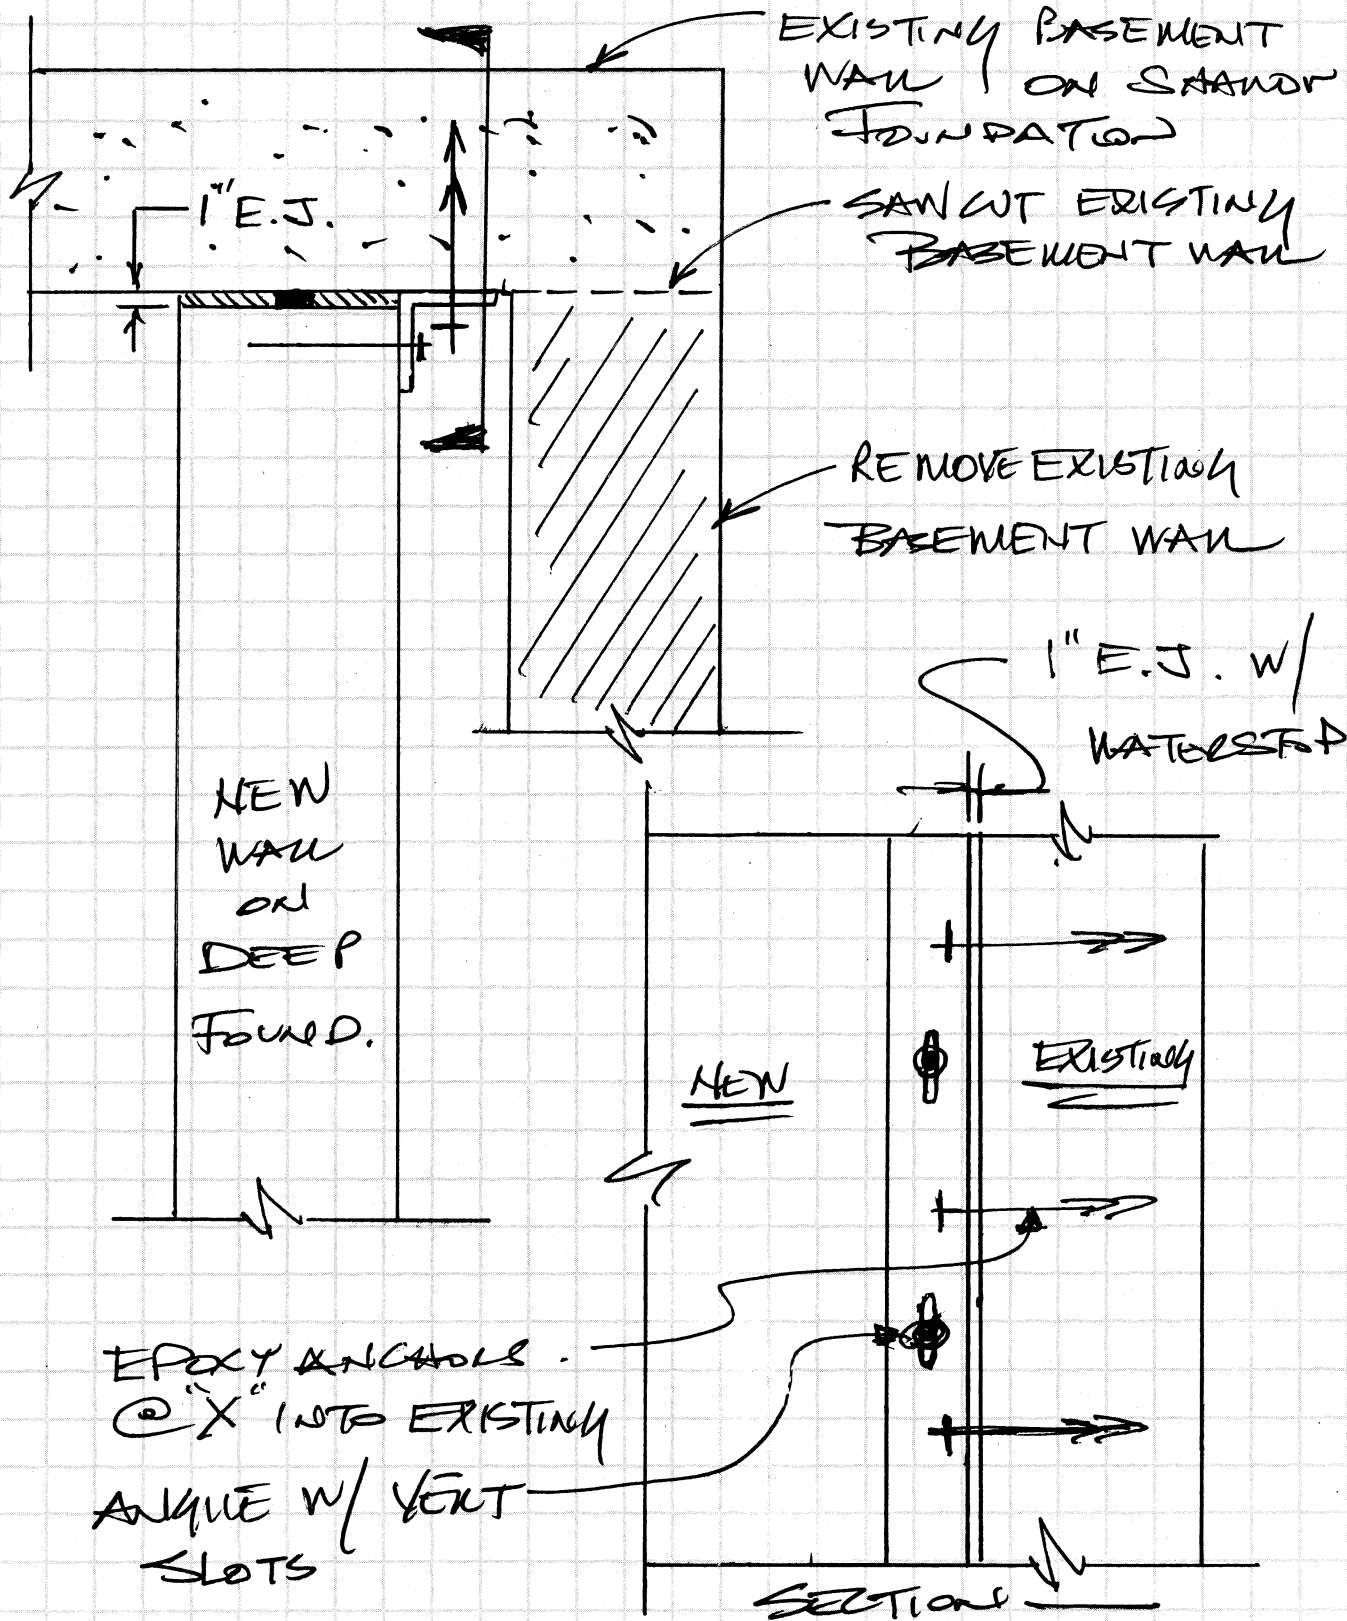 EXISTING BASEMENT
WALL ON SHALLOW
FOUNDATION
1" E.J.
SAWCUT EXISTING
BASEMENT WALL
REMOVE EXISTING
BASEMENT WALL
1" E.J. W/
WATERSTOP
NEW
WALL
ON
DEEP
FOUND.
NEW
EXISTING
EPOXY ANCHORS
@ "X" INTO EXISTING
ANGLE W/ VERT
SLOTS
SECTION